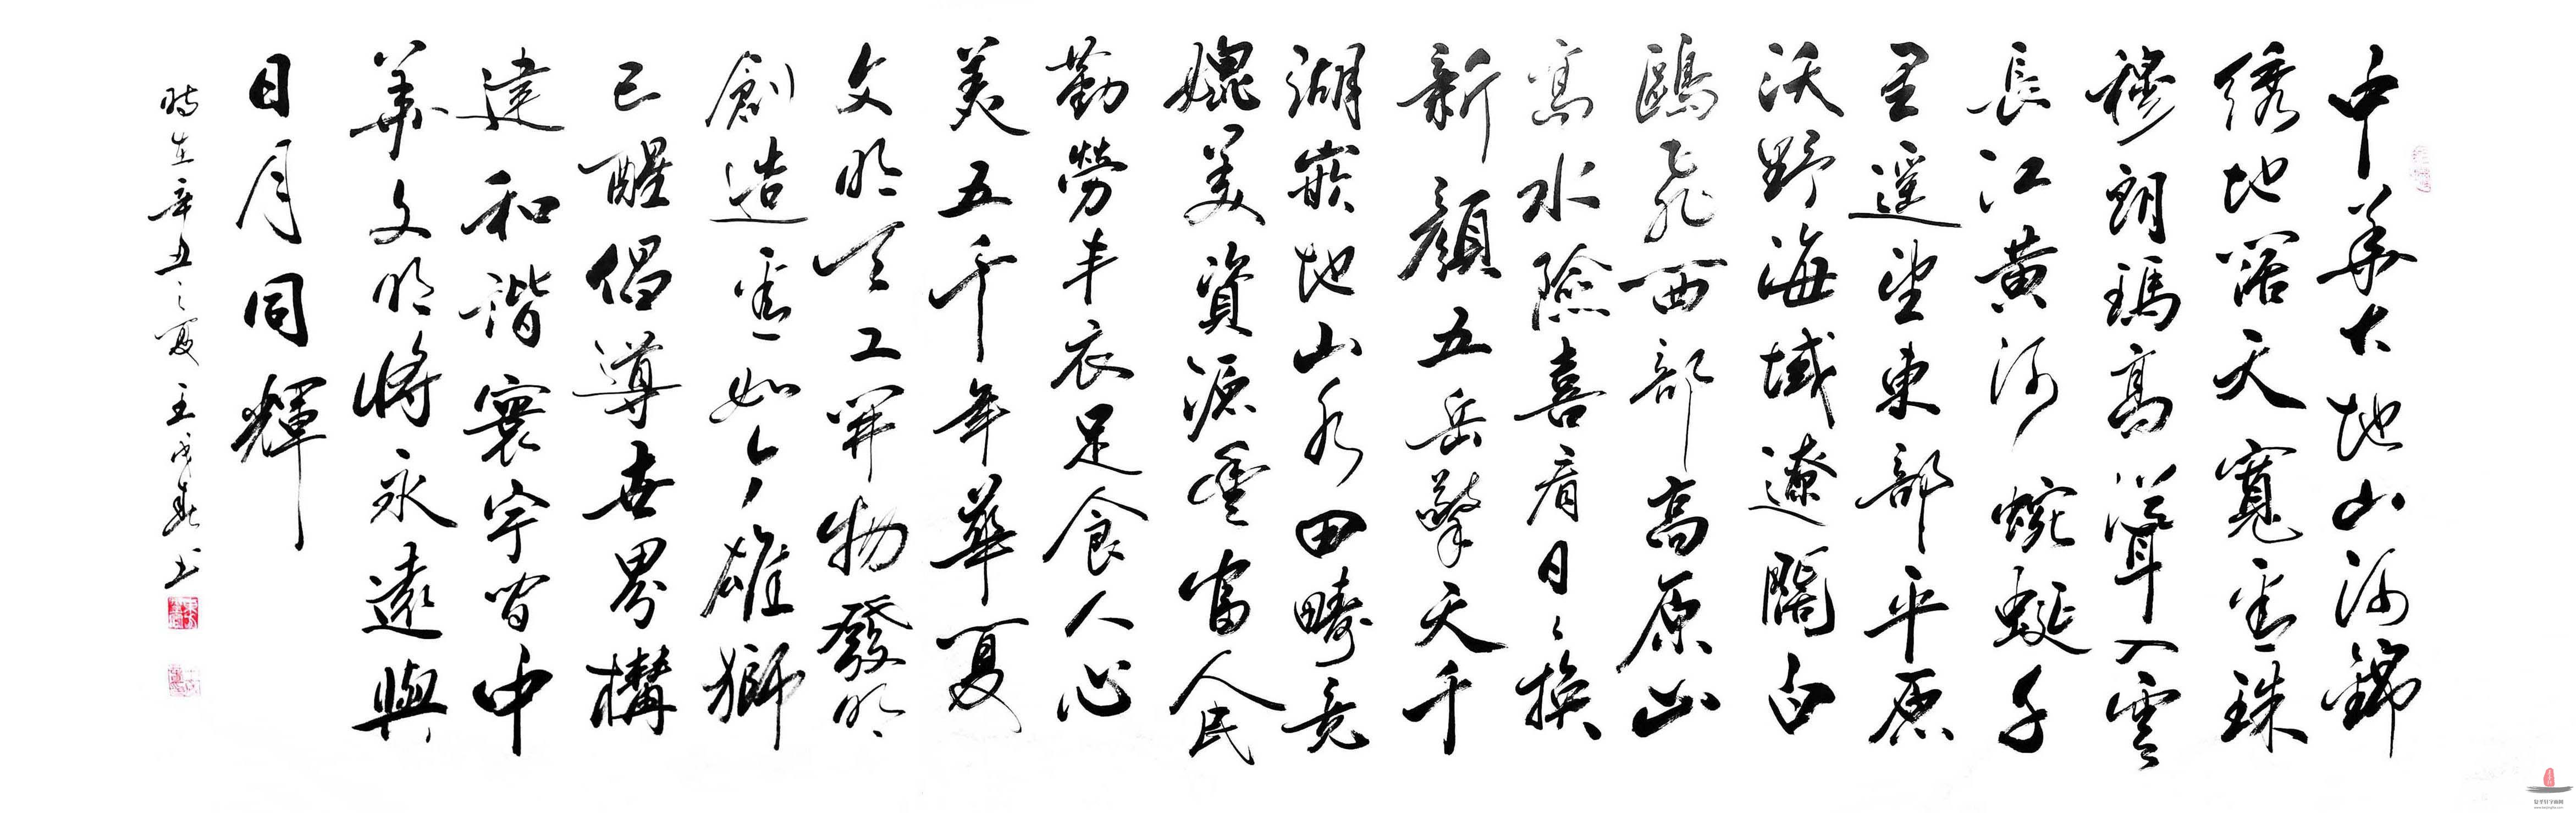 中华大地山河錦
绣地阔天寬重珠
穆朗瑪高聳入雲
長江黄河蜿蜒千
里遥望東部平原
沃野海域遼闊白
鷗飛西部高原山
高水險喜看日々换
新顔五岳擎天千
湖嵌地山水田疇竟
媲美資源豐富人民
勤勞丰衣足食人心
美五千年華夏
文明天工開物發明
創造重如今雄獅
已醒倡導世界構
建和谐寰宇皆中
華文明将永遠與
日月同輝
時在辛丑之夏王成